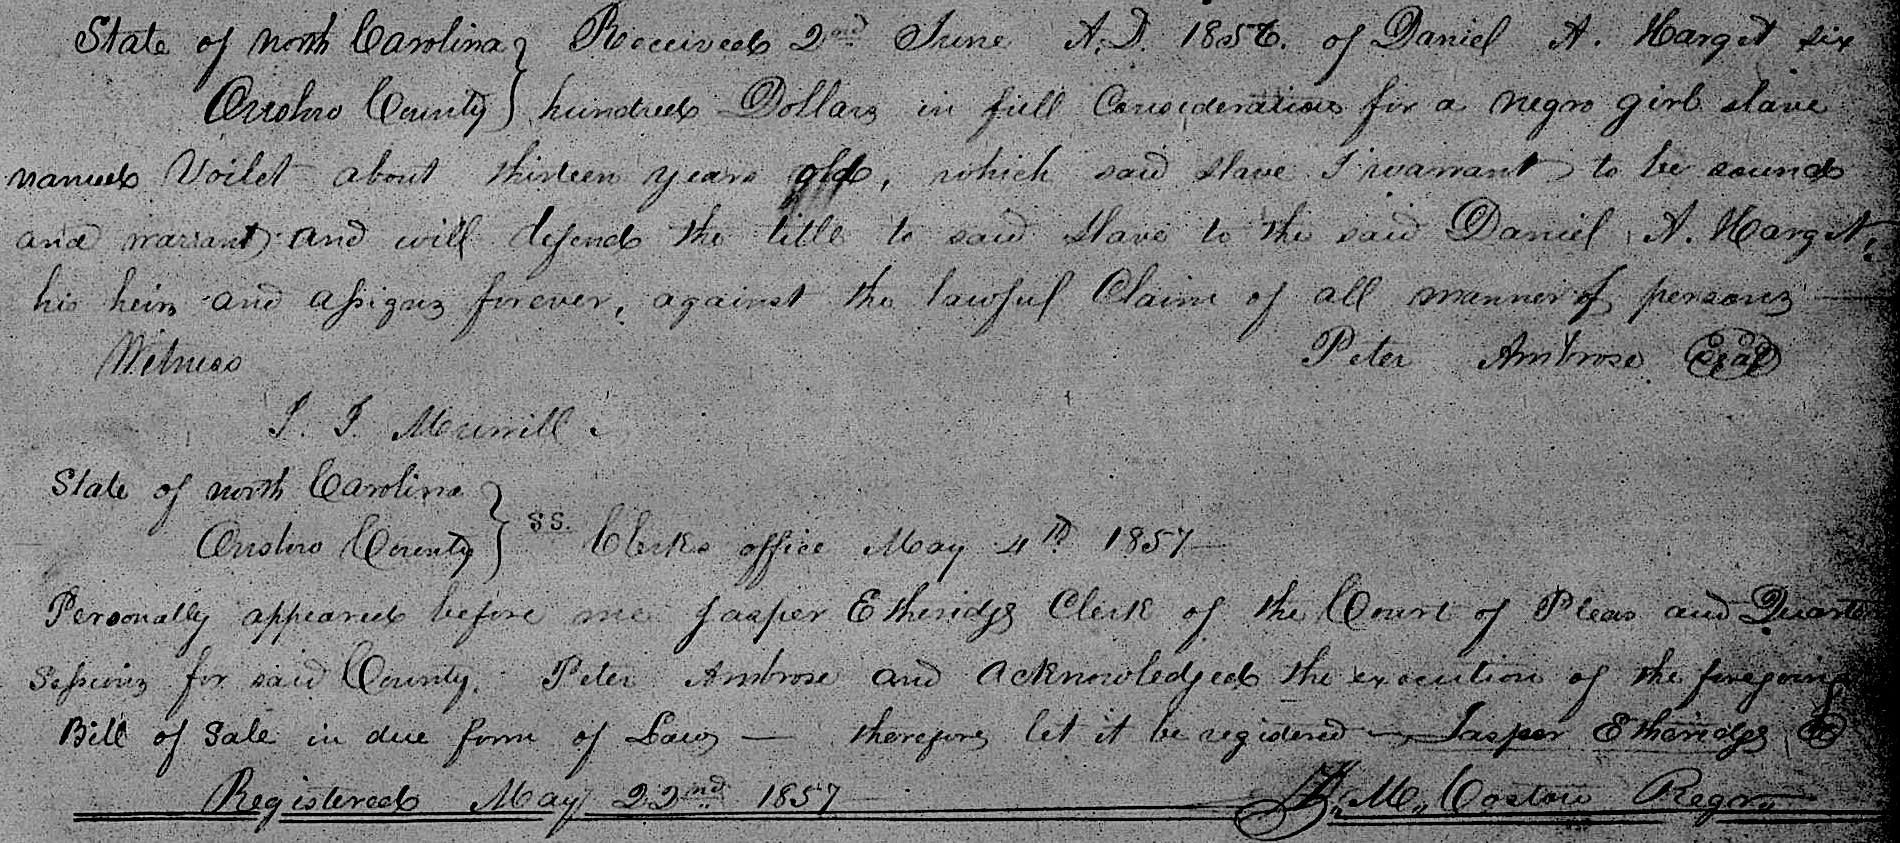 State of North Carolina } Received 2nd June A.D. 1856. of Daniel A. Harget six
Onslow County } hundred Dollars in full Consideration for a negro girl slave
named Voilet about thirteen years old, which said slave I warrant to be sound
and warrant and will defend the title to said slave to the said Daniel A. Harget,
his heirs and assigns forever, against the lawful Claim of all manner of persons
Witness Peter Ambrose Seal
Murrill
State of North Carolina }
Onslow County } SS. Clerks office May 4th 1857
Personally appeared before me Jasper Etheridge Clerk of the Court of Pleas and Quarter
Sessions for said County. Peter Ambrose and acknowledged the execution of the foregoing
Bill of Sale in due form of Law — therefore let it be registered — Jasper Etheridge
Registered May 22nd 1857 M. Costow Regr.